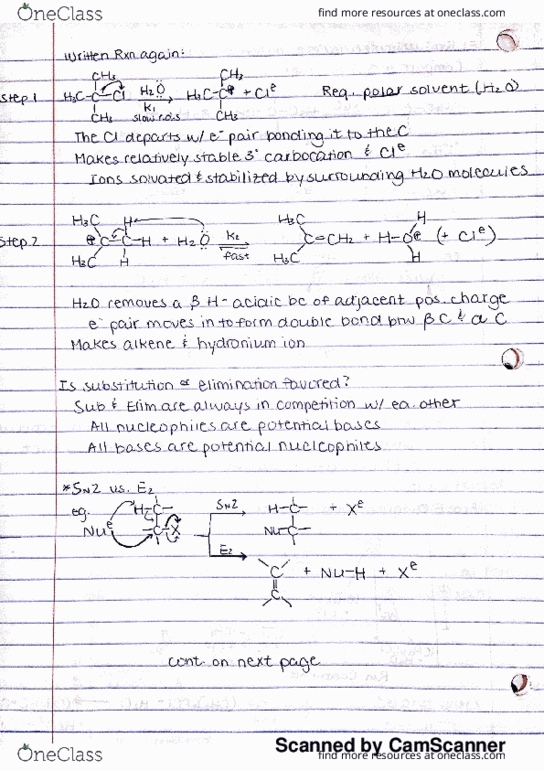 OneClass
find more resources at oneclass.com
Written Rxn again:
Step 1
CH3 H3C-C-Cl CH3 H2O K1 slow rds H3C-C⊕ CH3 CH3 + Cl⊖ Req. polar solvent (H2O)
The Cl departs w/ e⁻ pair bonding it to the C
Makes relatively stable 3° carbocation & Cl⊖
Ions solvated & stabilized by surrounding H2O molecules
Step 2
H3C H3C ⊕C-C-H H H + H2O K2 fast H3C H3C C=CH2 + H-O⊕ H H (+ Cl⊖)
H2O removes a β H - acidic bc of adjacent pos. charge
e⁻ pair moves in to form double bond btw β C & α C
Makes alkene & hydronium ion
Is substitution or elimination favored?
Sub & Elim are always in competition w/ ea. other
All nucleophiles are potential bases
All bases are potential nucleophiles
*SN2 vs. E2
eg. Nu⊖ H-C- -C-X SN2 H-C- Nu-C- + X⊖
E2 C=C + Nu-H + X⊖
cont. on next page
Scanned by CamScanner
OneClass
find more resources at oneclass.com